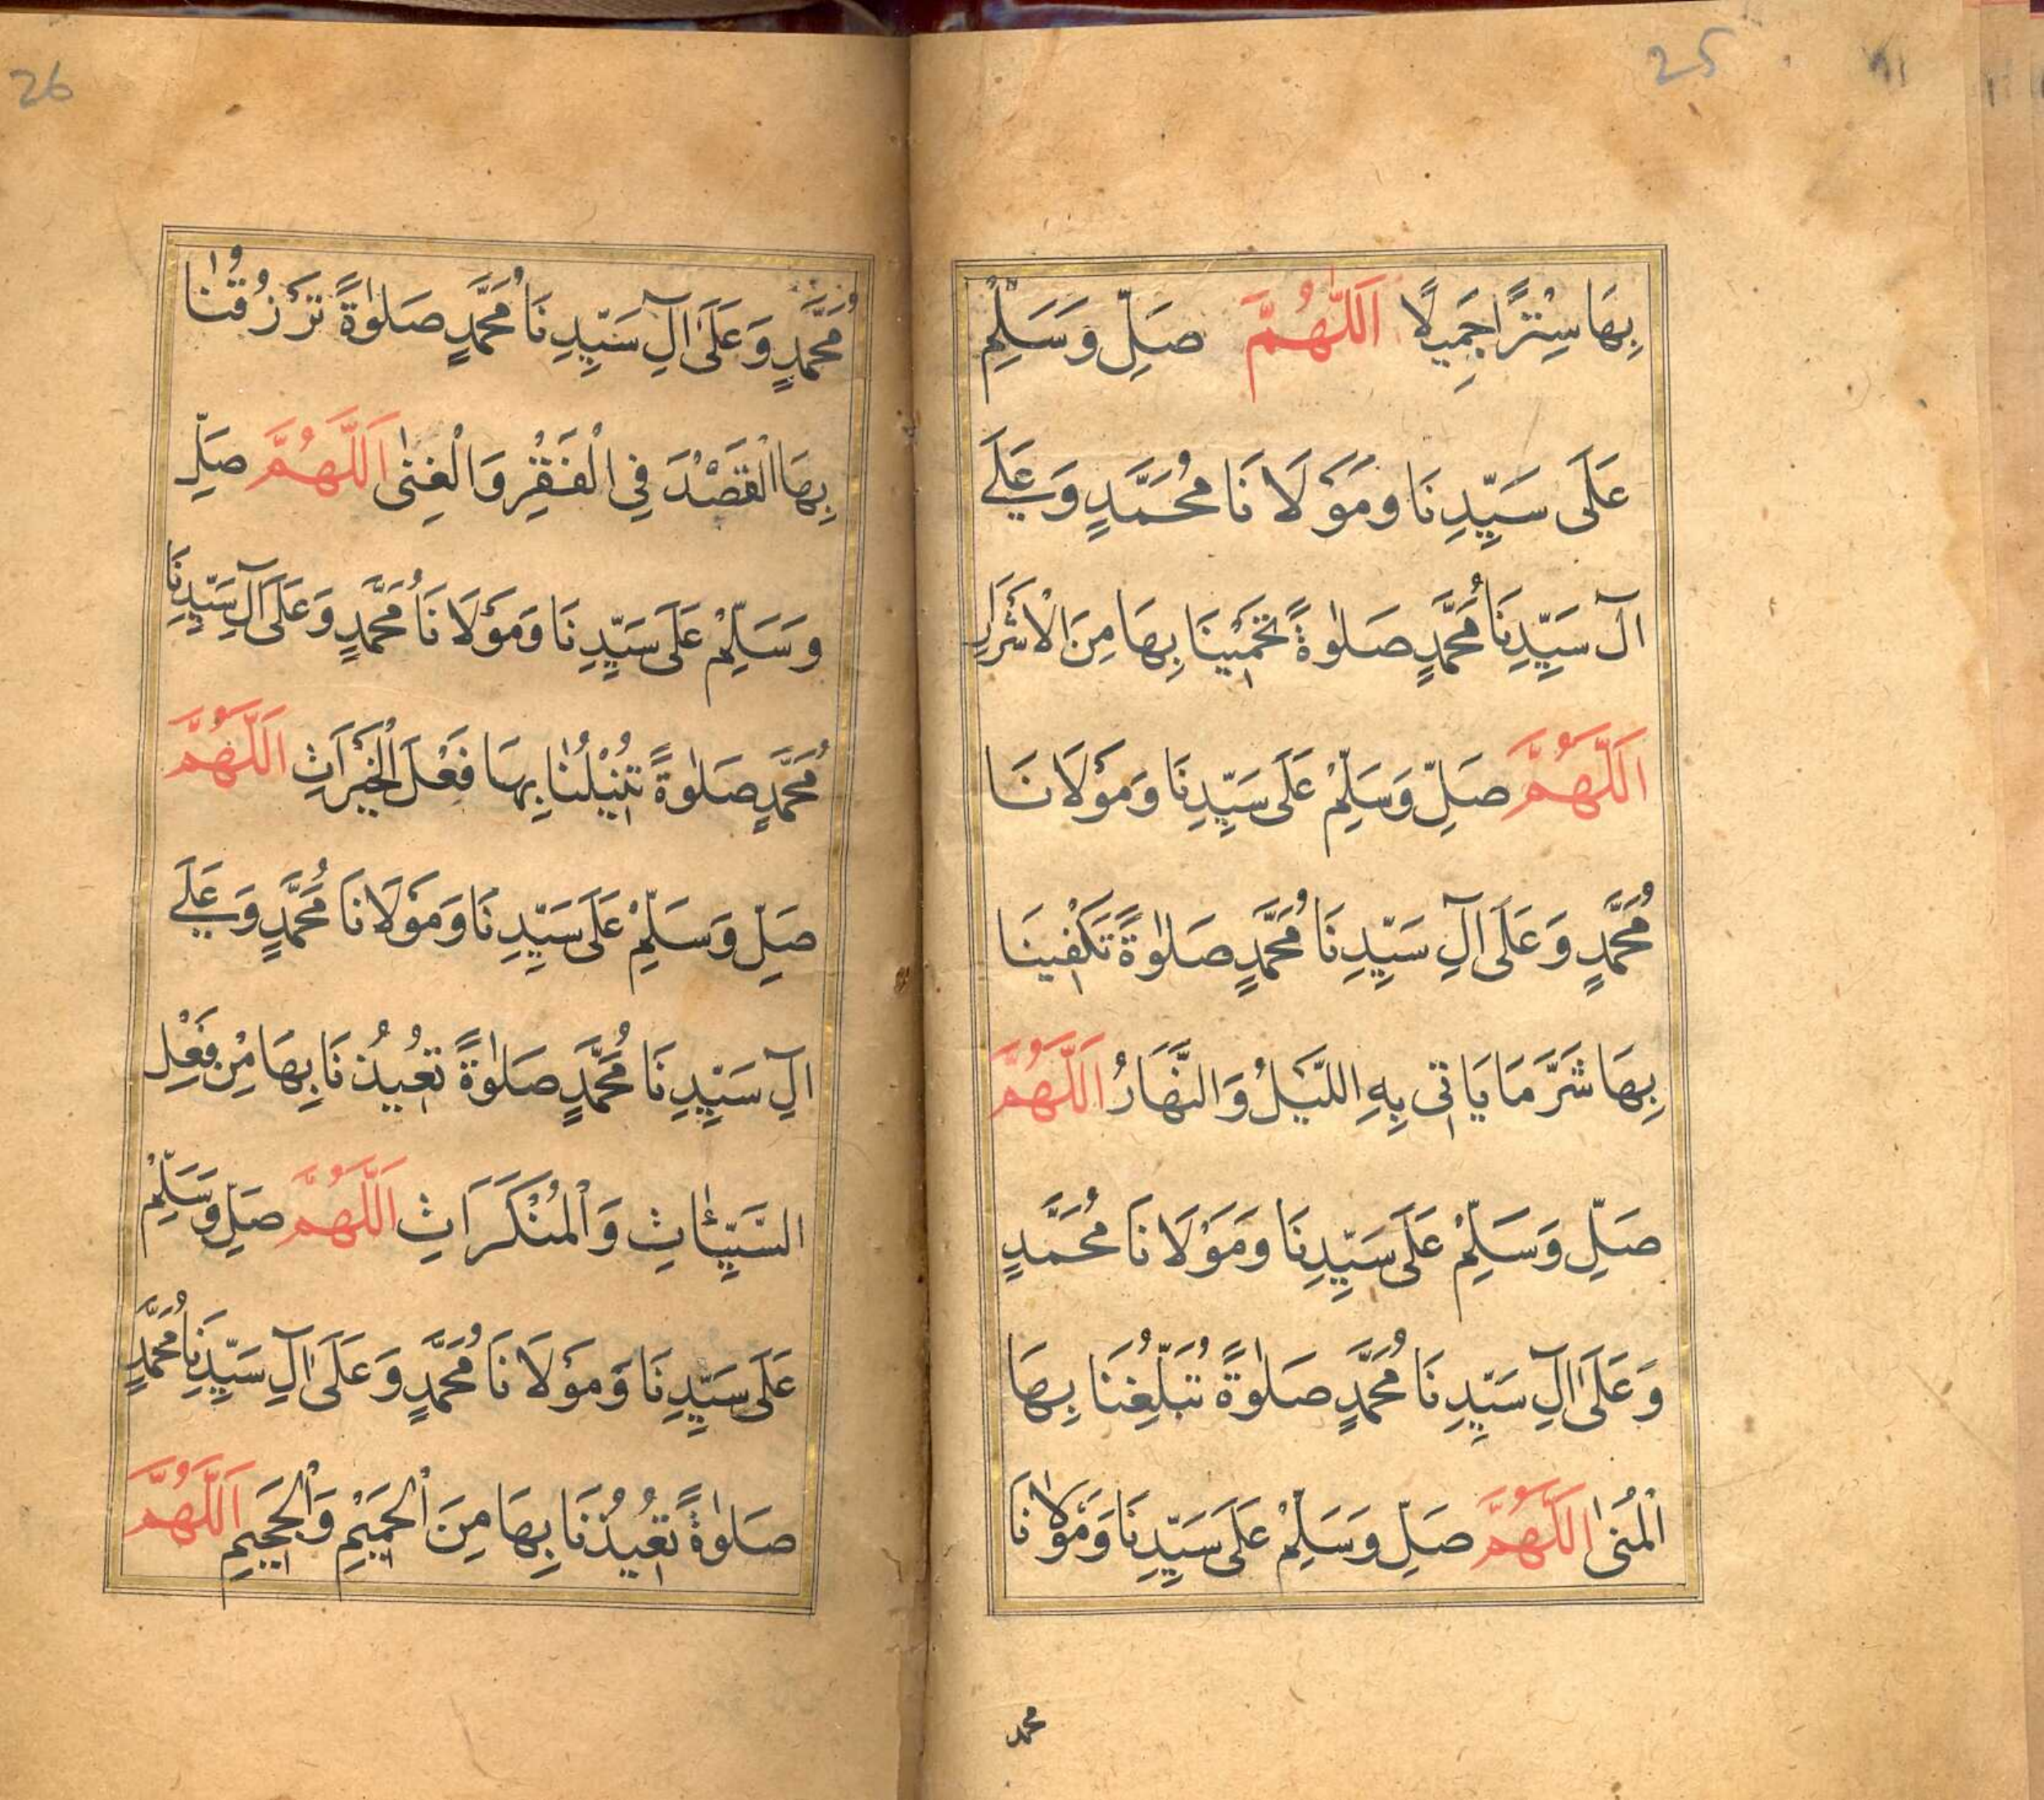 25
بِهَا سِتْرًا جَمِيلًا اَللّٰهُمَّ صَلِّ وَسَلِّمْ
عَلَى سَيِّدِنَا وَمَوْلَانَا مُحَمَّدٍ وَعَلَى
آلِ سَيِّدِنَا مُحَمَّدٍ صَلٰوةً تَحْمِيْنَا بِهَا مِنَ الْاَشْرَارِ
اَللّٰهُمَّ صَلِّ وَسَلِّمْ عَلَى سَيِّدِنَا وَمَوْلَانَا
مُحَمَّدٍ وَعَلَى آلِ سَيِّدِنَا مُحَمَّدٍ صَلٰوةً تَكْفِينَا
بِهَا شَرَّ مَا يَاتِى بِهِ اللَّيْلُ وَالنَّهَارُ اَللّٰهُمَّ
صَلِّ وَسَلِّمْ عَلَى سَيِّدِنَا وَمَوْلَانَا مُحَمَّدٍ
وَعَلَى آلِ سَيِّدِنَا مُحَمَّدٍ صَلٰوةً تُبَلِّغُنَا بِهَا
الْمُنٰى اَللّٰهُمَّ صَلِّ وَسَلِّمْ عَلَى سَيِّدِنَا وَمَوْلَانَا
محمد
26
مُحَمَّدٍ وَعَلَى آلِ سَيِّدِنَا مُحَمَّدٍ صَلٰوةً تَرْزُقُنَا
بِهَا الْقَصْدَ فِى الْفَقْرِ وَالْغِنٰى اَللّٰهُمَّ صَلِّ
وَسَلِّمْ عَلَى سَيِّدِنَا وَمَوْلَانَا مُحَمَّدٍ وَعَلَى آلِ سَيِّدِنَا
مُحَمَّدٍ صَلٰوةً تُنِيْلُنَا بِهَا فَعْلَ الْخَيْرَاتِ اَللّٰهُمَّ
صَلِّ وَسَلِّمْ عَلَى سَيِّدِنَا وَمَوْلَانَا مُحَمَّدٍ وَعَلَى
آلِ سَيِّدِنَا مُحَمَّدٍ صَلٰوةً تُعِيْذُنَا بِهَا مِنْ فَعْلِ
السَّيِّئٰاتِ وَالْمُنْكَرَاتِ اَللّٰهُمَّ صَلِّ وَسَلِّمْ
عَلَى سَيِّدِنَا وَمَوْلَانَا مُحَمَّدٍ وَعَلَى آلِ سَيِّدِنَا مُحَمَّدٍ
صَلٰوةً تُعِيْذُنَا بِهَا مِنَ الْحَمِيْمِ وَالْجَحِيمِ اَللّٰهُمَّ